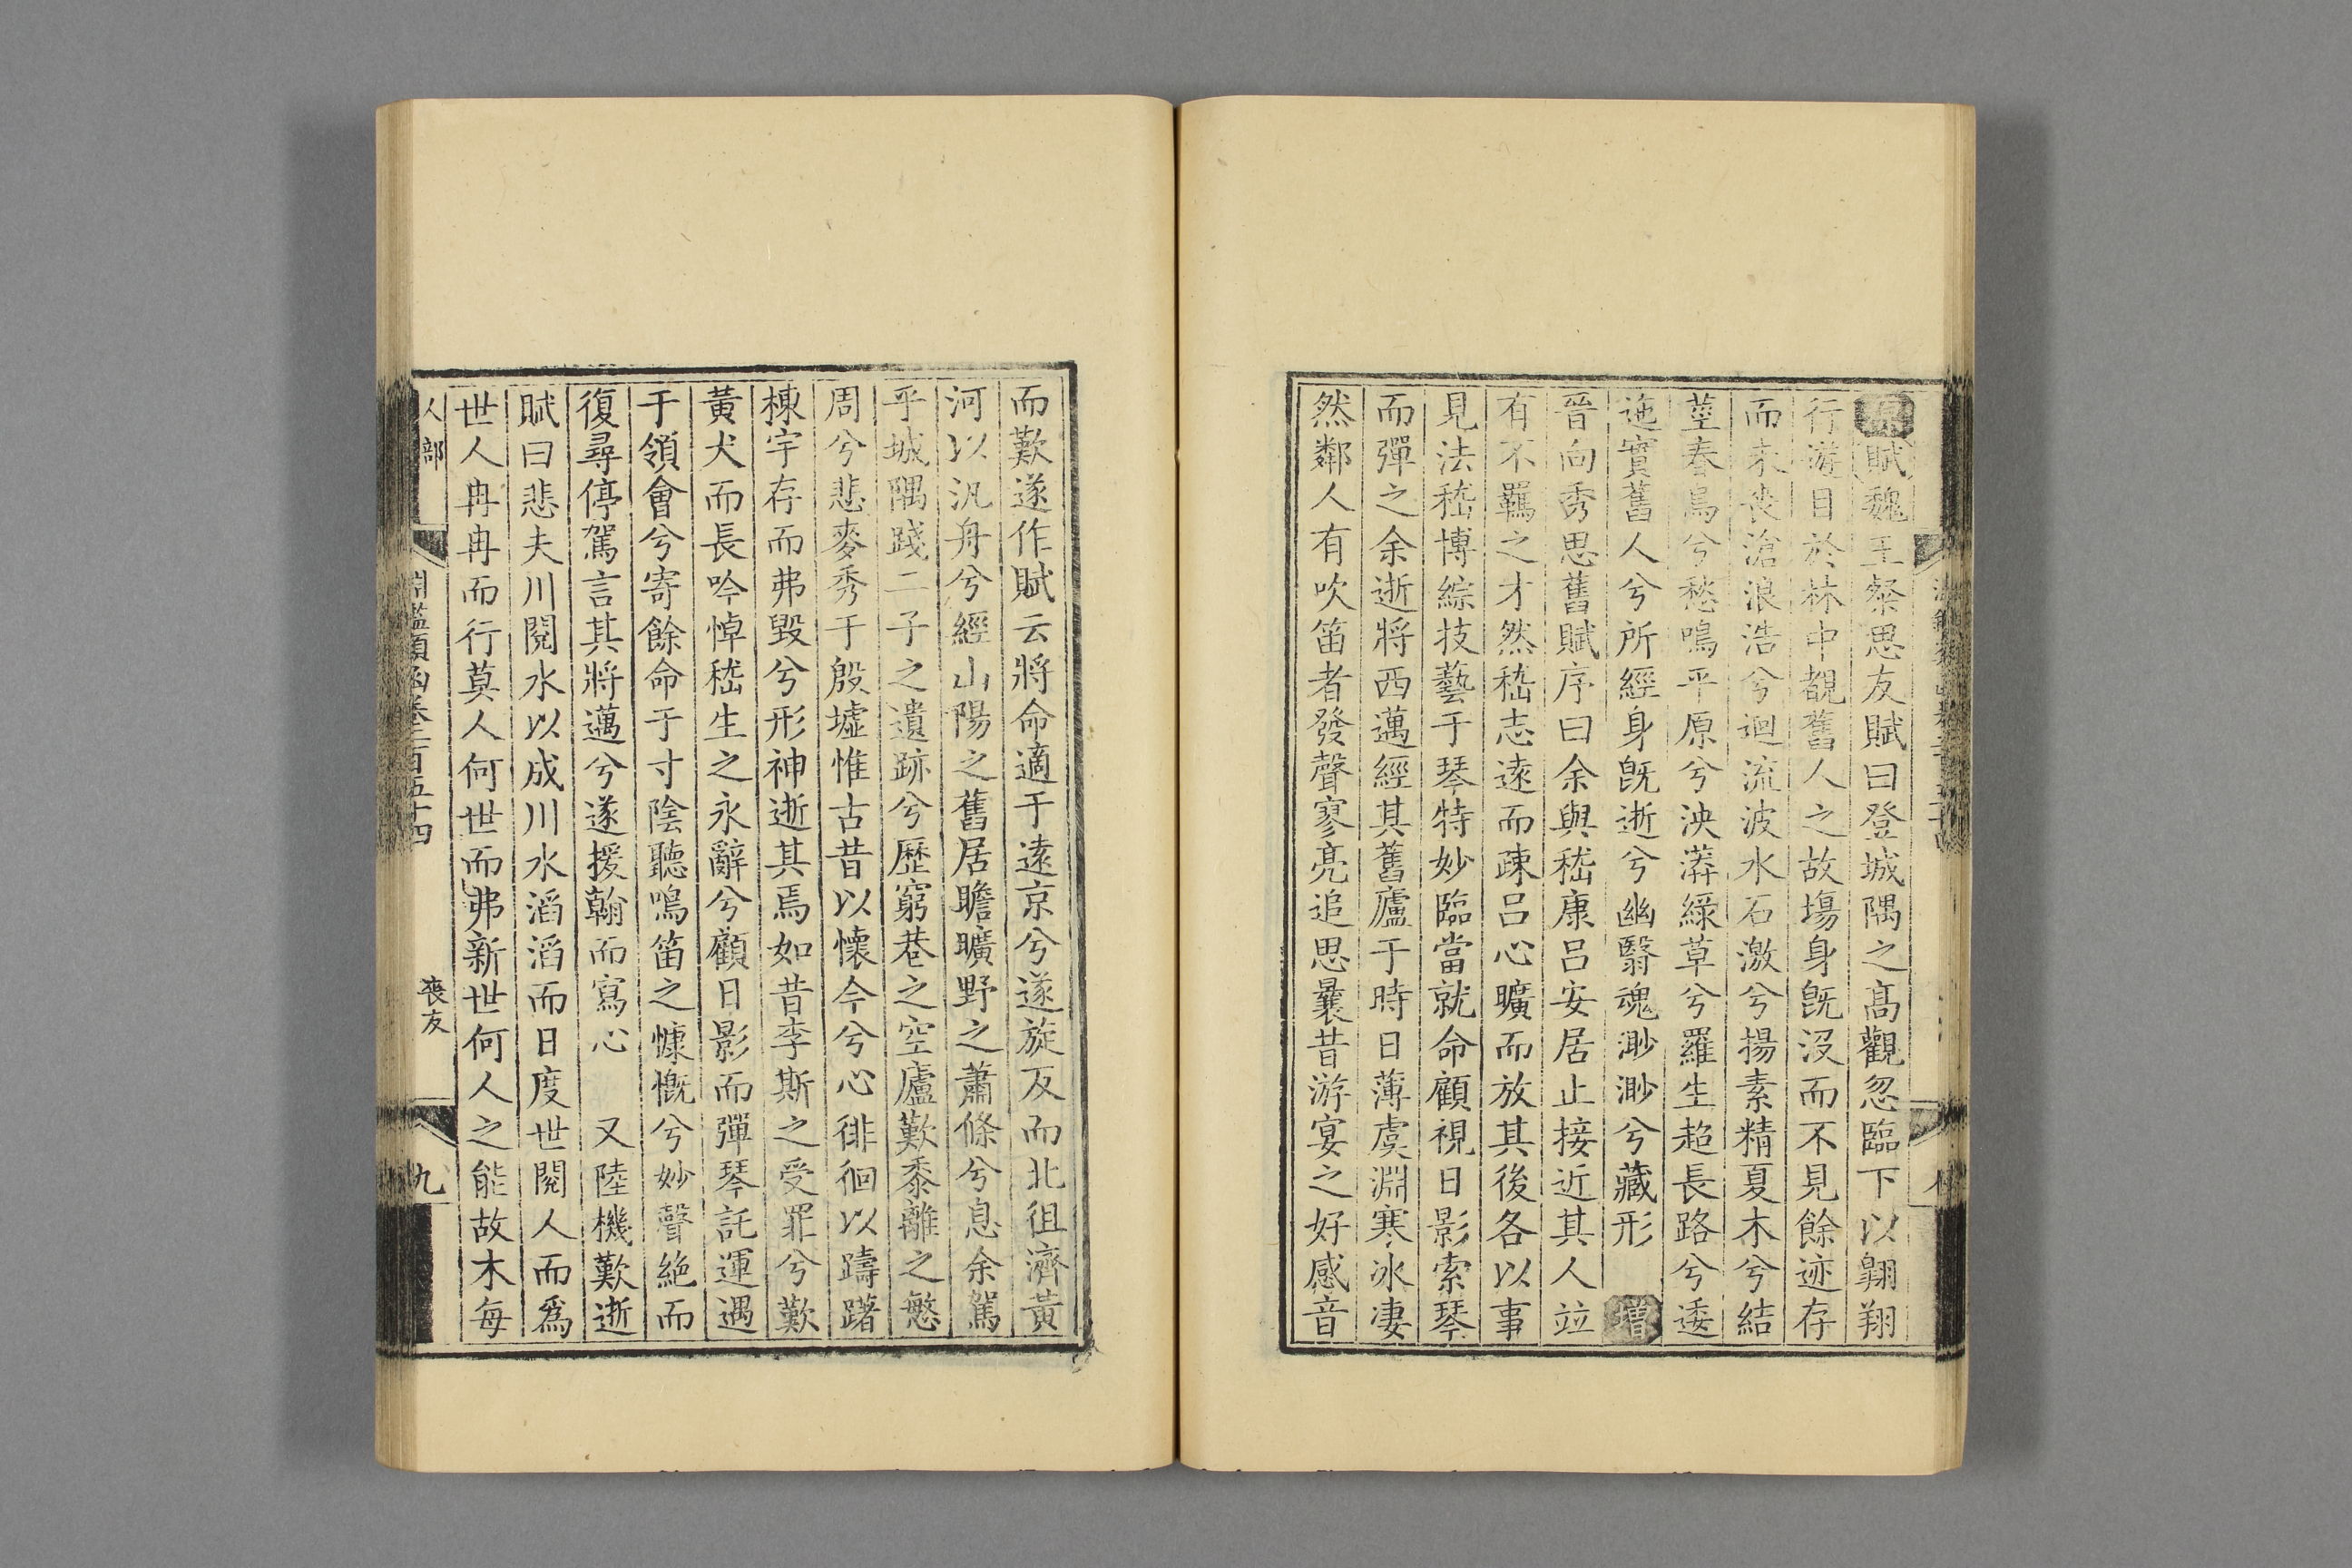 原賦魏王粲思友賦曰登城隅之高觀忽臨下以翺翔
行游目於林中覩舊人之故場身旣沒而不見餘迹存
而未喪滄浪浩兮迴流波水石激兮揚素精夏木兮結
莖春鳥兮愁鳴平原兮泱漭綠草兮羅生超長路兮逶
迤實舊人兮所經身旣逝兮幽翳魂渺渺兮藏形 增
晉向秀思舊賦序曰余與嵇康呂安居止接近其人竝
有不羈之才然嵇志遠而疎呂心曠而放其後各以事
見法嵇博綜技藝于琴特妙臨當就命顧視日影索琴
而彈之余逝將西邁經其舊廬于時日薄虞淵寒冰凄
然鄰人有吹笛者發聲寥亮追思曩昔游宴之好感音
而歎遂作賦云將命適于遠京兮遂旋反而北徂濟黃
河以汎舟兮經山陽之舊居瞻曠野之蕭條兮息余駕
乎城隅踐二子之遺跡兮歷窮巷之空廬歎黍離之愍
周兮悲麥秀于殷墟惟古昔以懷今兮心徘徊以躊躇
棟宇存而弗毀兮形神逝其焉如昔李斯之受罪兮歎
黃犬而長吟悼嵇生之永辭兮顧日影而彈琴託運遇
于領會兮寄餘命于寸陰聽鳴笛之慷慨兮妙聲絕而
復尋停駕言其將邁兮遂援翰而寫心 又陸機歎逝
賦曰悲夫川閱水以成川水滔滔而日度世閱人而爲
世人冉冉而行莫人何世而弗新世何人之能故木每
人部 淵鑑類函卷二百五十四 喪友 九